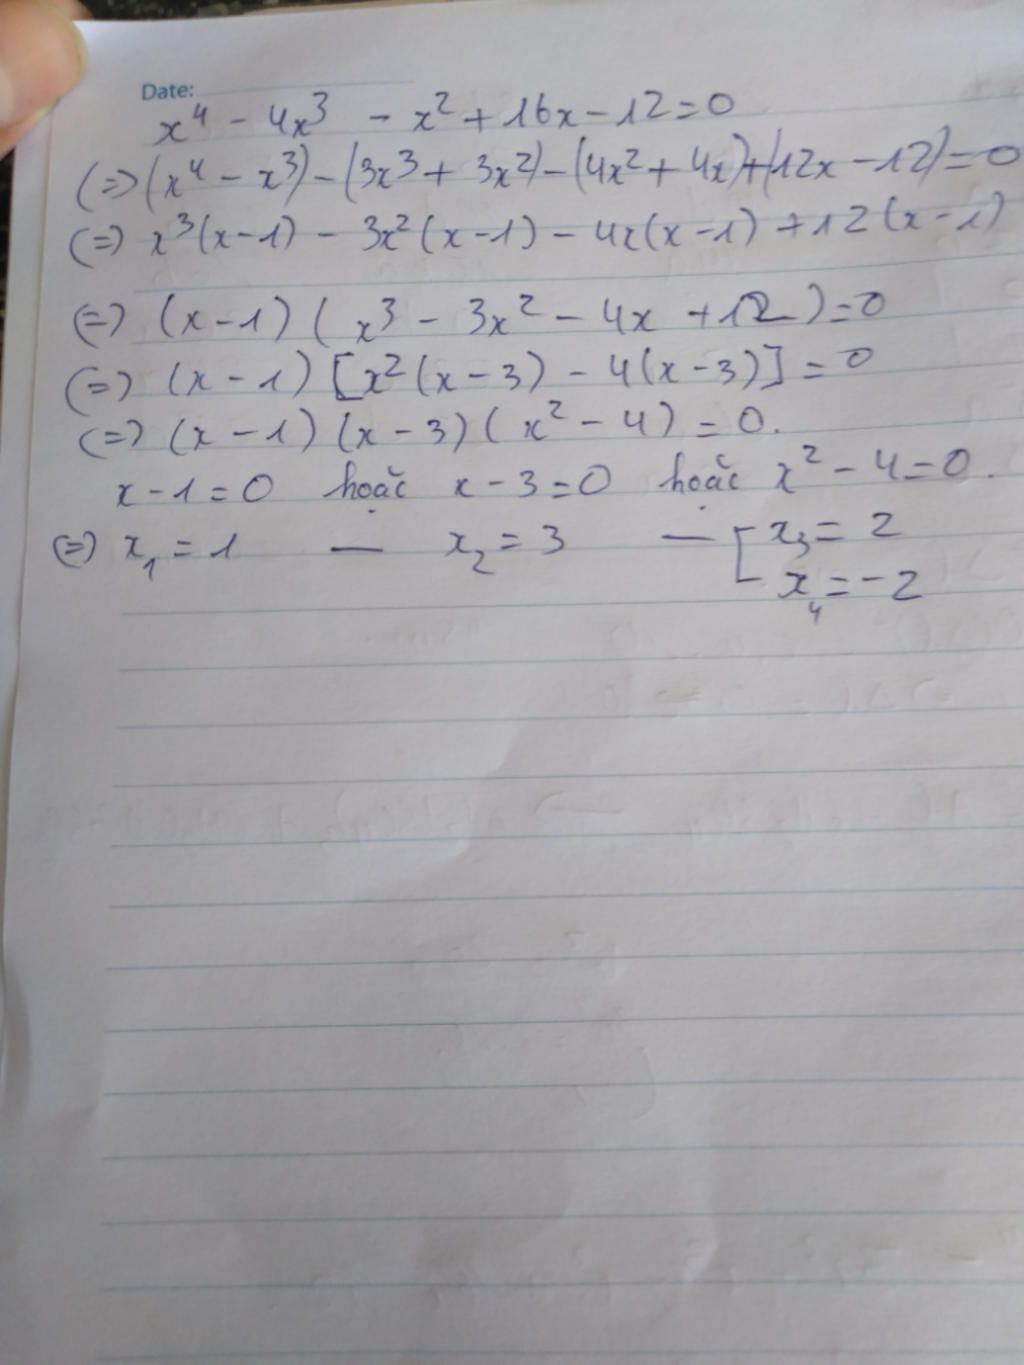 Date:
x⁴ - 4x³ - x² + 16x - 12 = 0
(=>) (x⁴ - x³) - (3x³ + 3x²) - (4x² + 4x) + (12x - 12) = 0
(=) x³(x-1) - 3x²(x-1) - 4x(x-1) + 12(x-1)
(=) (x-1)(x³ - 3x² - 4x + 12) = 0
(=) (x-1)[x²(x-3) - 4(x-3)] = 0
(=) (x-1)(x-3)(x² - 4) = 0.
x-1=0 hoặc x-3=0 hoặc x² - 4 = 0.
(=) x₁ = 1 — x₂ = 3 — [ x₃ = 2
x₄ = -2